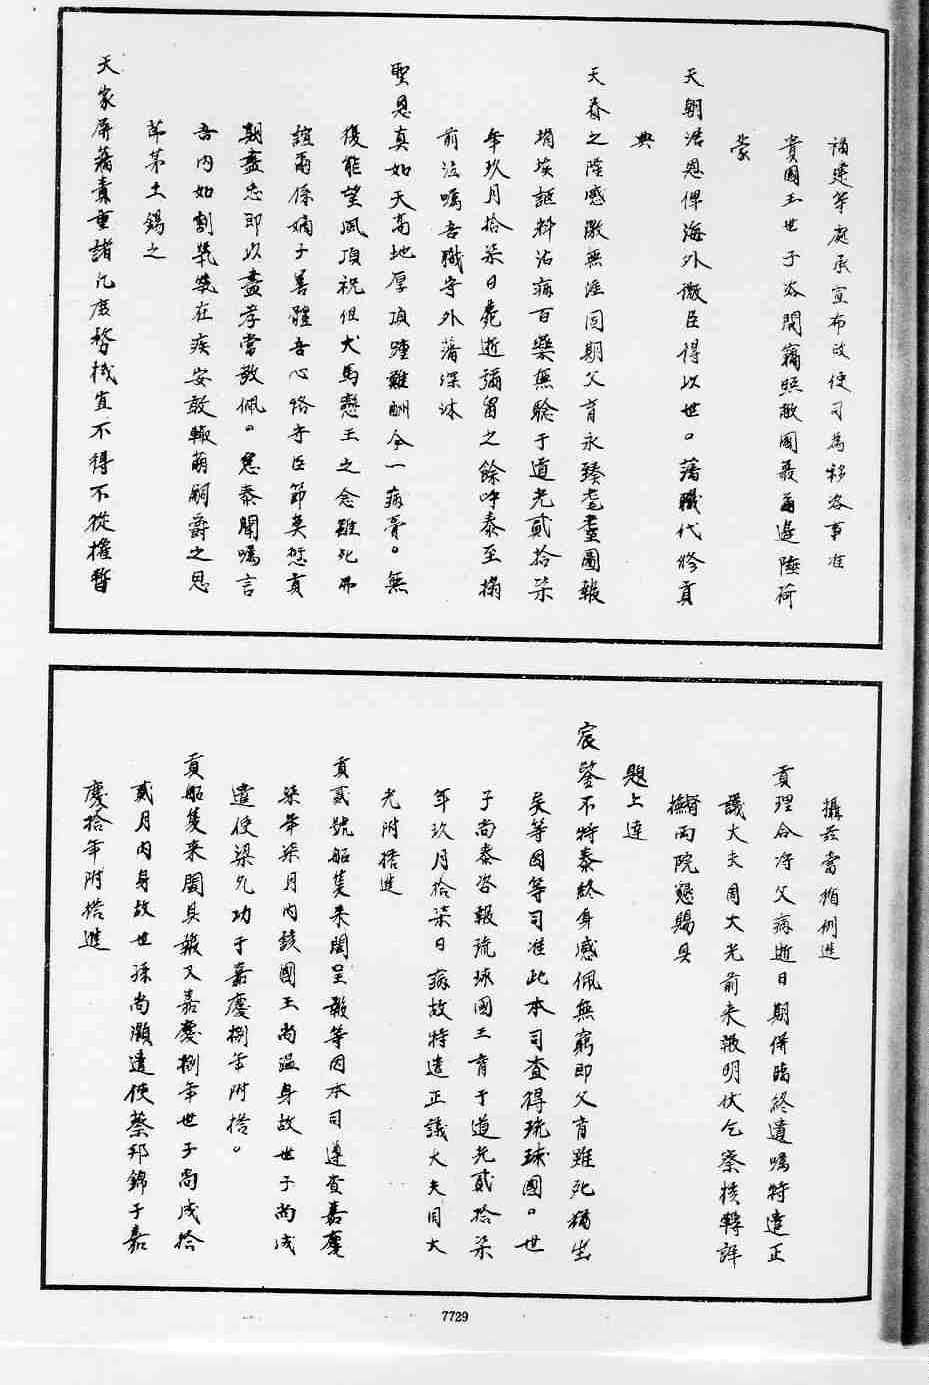 福建等處承宣布政使司為移咨事准
貴國王世子咨開竊照敝國叢爾邊陲荷
蒙
天朝浩恩俾海外微臣得以世。藩職代修貢
典
天眷之隆感激無涯回期父育永臻耄耋圖報
埇埃詎料沾病百藥無騐于道光貳拾柒
年玖月拾柒日薨逝彌留之餘呼泰至榻
前泣囑吾職守外藩深沐
聖恩真如天高地厚頂踵難酬今一病膏。無
復能望風頂祝但犬馬戀主之念雖死弗
諠爾係嫡子善體吾心恪守臣節矣愆貢
期盡忠即以盡孝當敬佩。怠泰聞囑言
吾內如割煢煢在疾安敢輙萌嗣爵之思
苐茅土錫之
天家屏藩責重諸凡庶務機宜不得不從權暫
攝茲當循例進
貢理合将父病逝日期併臨終遺囑特遣正
議大夫周大光前来報明伏乞察核轉詳
督撫兩院懇賜具
題上達
宸鋻不特泰終身感佩無窮即父育雖死猶生
矣等因等司准此本司查得琉球國。世
子尚泰咨報琉球國王育于道光貳拾柒
年玖月拾柒日病故特遣正議大夫周大
光附搭進
貢貳號船隻来閩呈報等因本司遵查嘉慶
柒年柒月內該國王尚温身故世子尚成
遣使梁允功于嘉慶捌年附搭。
貢船隻来閩具報又嘉慶捌年世子尚成拾
貳月內身故世孫尚灝遣使蔡邦錦于嘉
慶拾年附搭進
7729